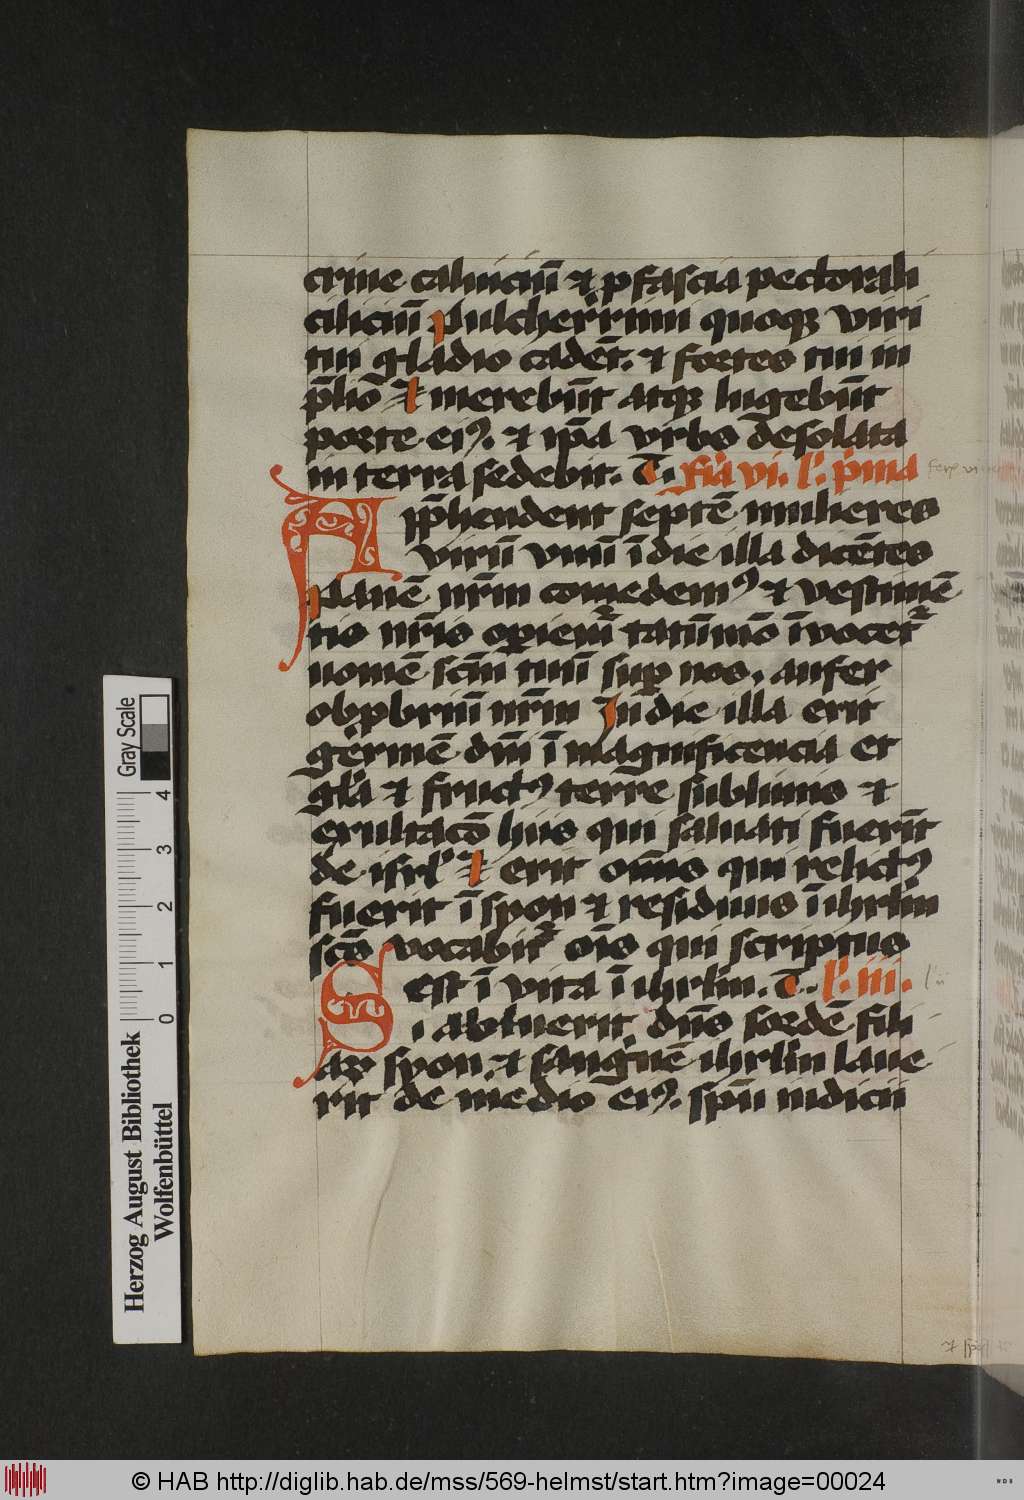 crine caluiciū ⁊ ꝑ fascia pectorali
ciliciū Pulcherrimi quoqꝫ viri
tui gladio cadēt. ⁊ fortes tui in
p̄lio ⁊ merebūt atqꝫ lugebūt
porte eiꝰ. ⁊ ip̄a vrbs desolata
in terra sedebit. T. Fīa vi. l' p̄ma
App̄hendent septē mulieres
virū vnū ī die illa dicētes
Panē nr̄m comedemꝰ ⁊ vestimē
tis nr̄is operiemʳ tātūmō īvocetʳ
nomē tuū suꝑ nos. aufer
obꝓbriū nr̄m In die illa erit
germē dn̄i ī magnificencia et
gl'a ⁊ fructꝰ terre sublimis ⁊
exultacō hiis qui saluati fuerīt
de isrl' ⁊ erit om̄is qui relictꝰ
fuerit ī syon ⁊ residuus ī ihrlm
scūs vocabitʳ oīs qui scriptus
est ī vita ī ihrlm. T. l' iii.
Si abluerit dn̄s sordē fili
aꝝ syon. ⁊ sanguinē ihrlm laue
rit de medio eiꝰ. sp̄u iudicii
Gray Scale
0 1 2 3 4
Herzog August Bibliothek
Wolfenbüttel
© HAB http://diglib.hab.de/mss/569-helmst/start.htm?image=00024